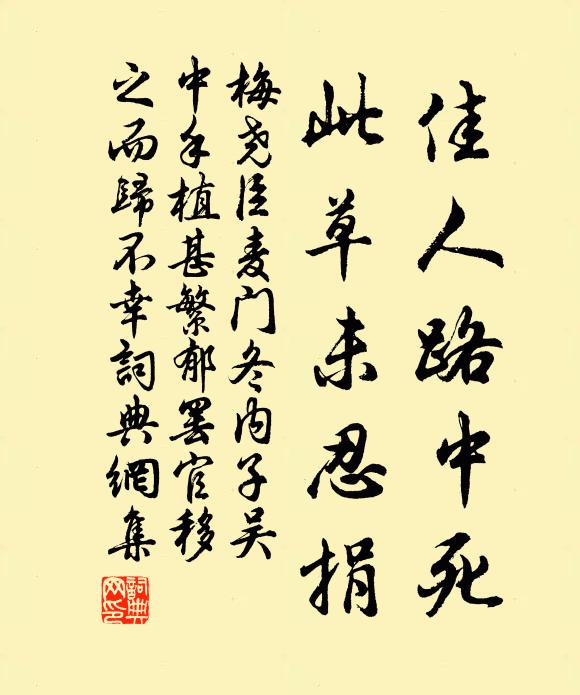 佳人路中死
此草未忍捐
梅尧臣麦门冬内子吴
中手植甚繁郁罢官移
之而歸不幸詞典網集
詞典
网印